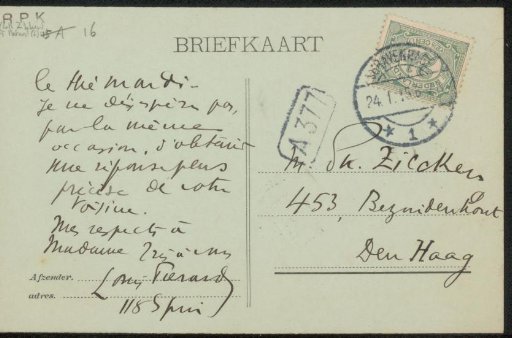 R.P.K
16
BRIEFKAART
le thé mardi.
Je ne désespère pas,
par la même
occasion, d'obtenir
une réponse plus
précise de votre
voisine.
Mes respects à
Madame
Louis Pierard
118
Afzender.
adres.
A 377
24.1
1
M. Ph. Zilcken
453, Bezuidenhout
Den Haag